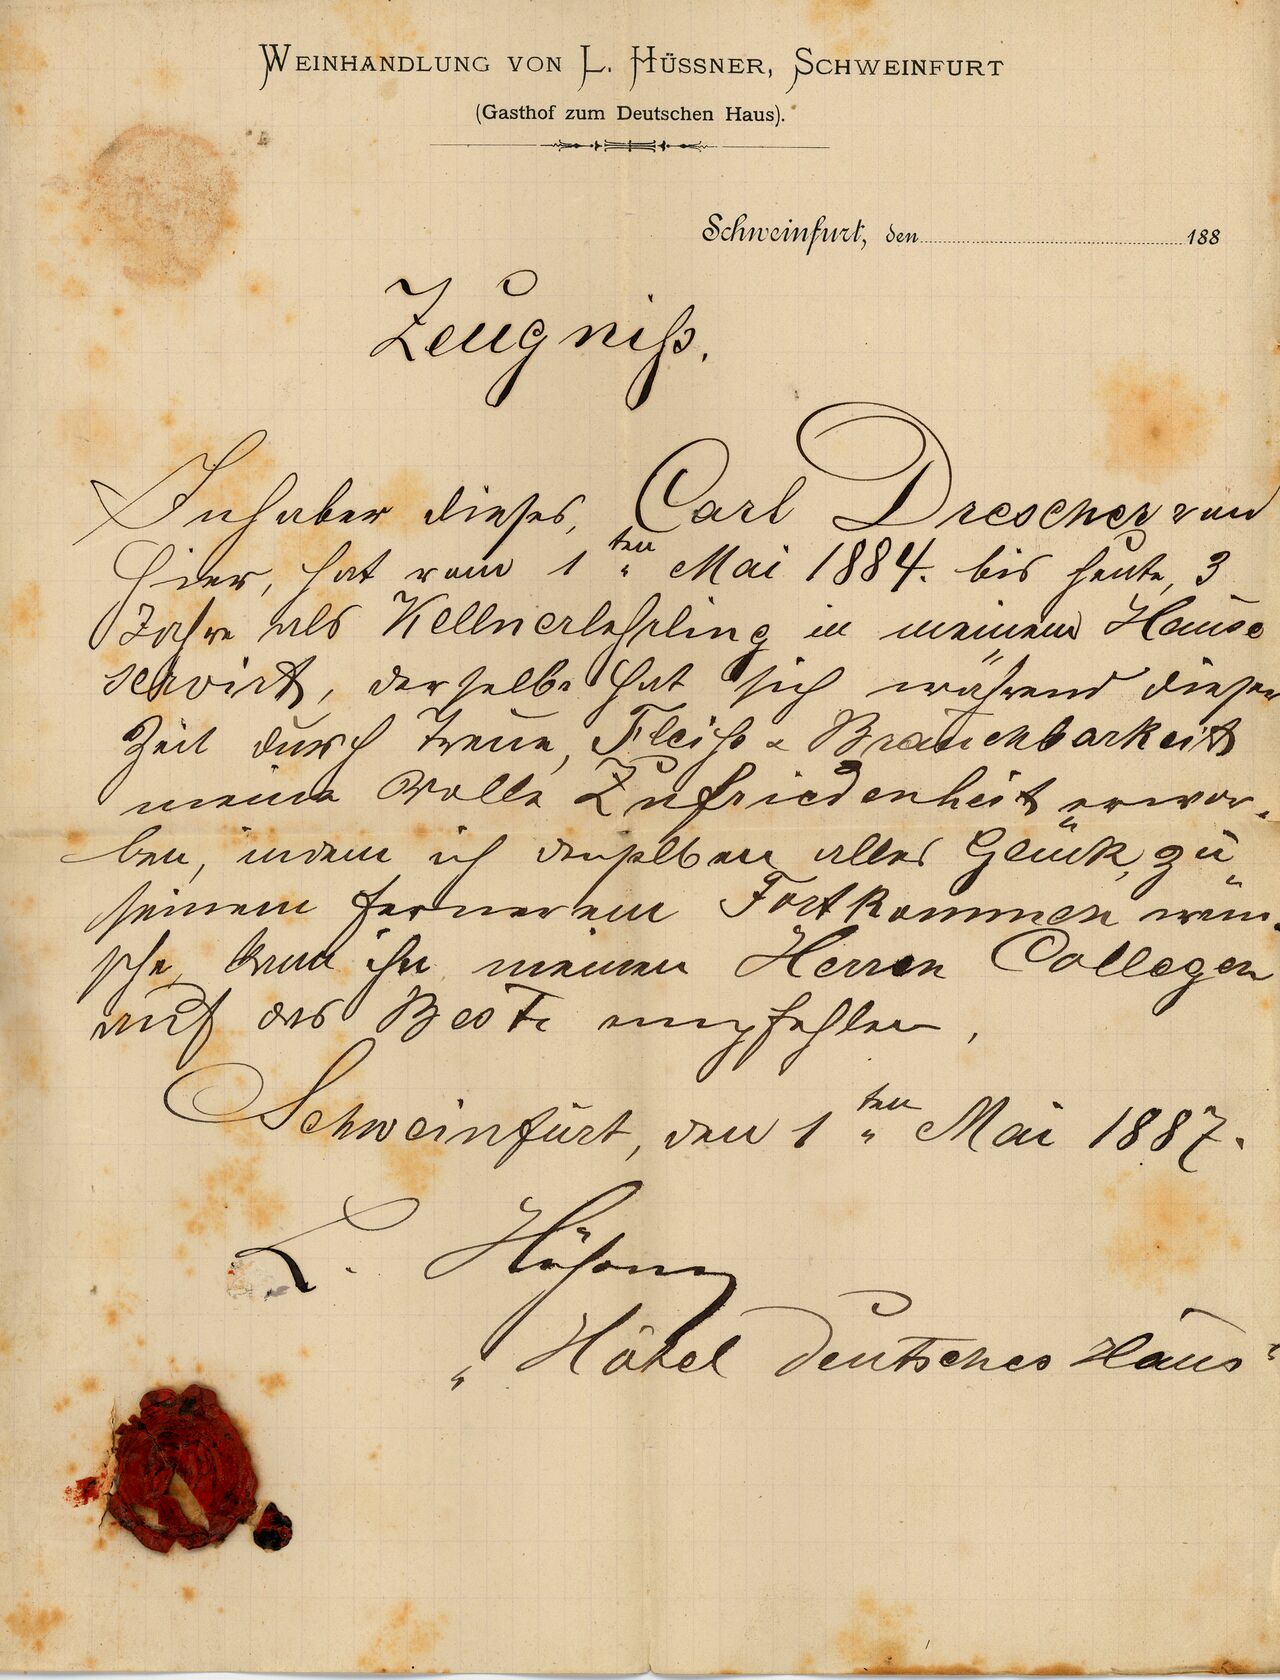 WEINHANDLUNG VON L. HÜSSNER, SCHWEINFURT
(Gasthof zum Deutschen Haus).
Schweinfurt, den 188
Zeugniß.
Inhaber dieses, Carl Drescher von
hier, hat vom 1ten Mai 1884. bis heute, 3
Jahre als Kellnerlehrling in meinem Hause
servirt, derselbe hat sich während dieser
Zeit durch Treue, Fleiß & Brauchbarkeit
meine volle Zufriedenheit erwor-
ben, indem ich demselben alles Glück, zu
seinem ferneren Fortkommen wün-
sche, kann ihn meinen Herren Collegen
auf das Beste empfehlen.
Schweinfurt, den 1ten Mai 1887.
L. Hüßner
„Hôtel Deutsches Haus“